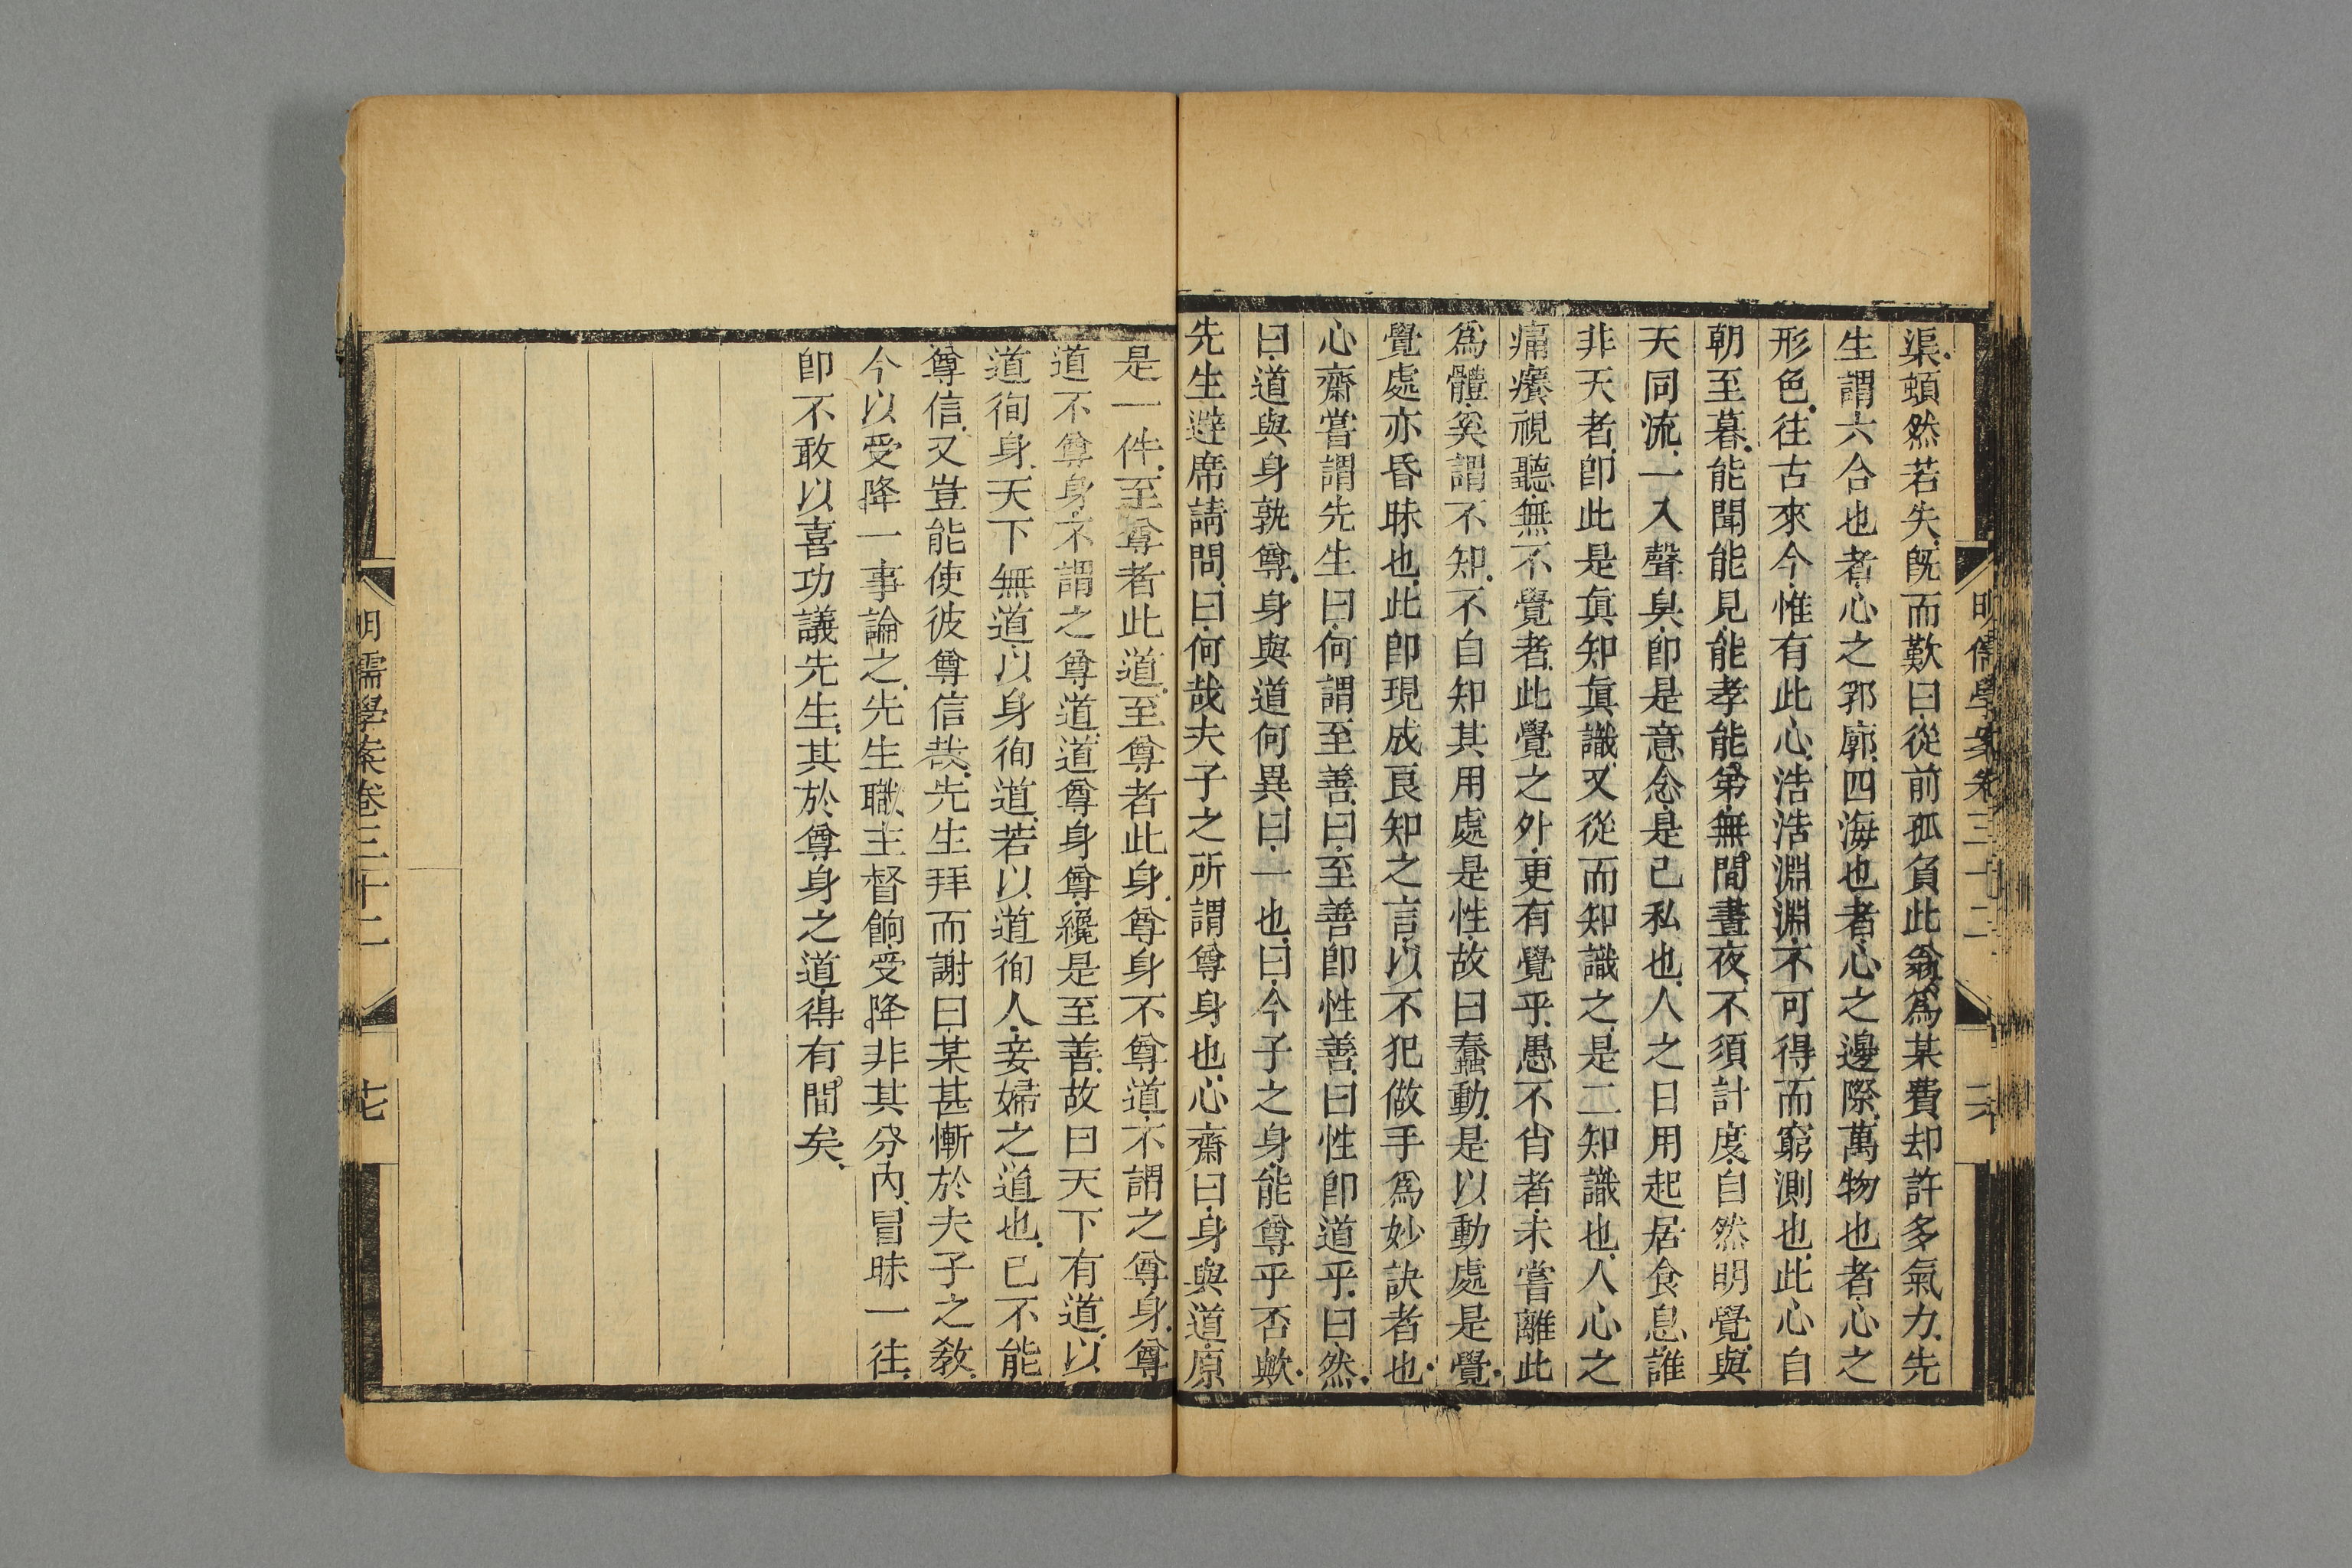 渠頓然若失既而歎曰從前孤負此翁為某費却許多氣力先
生謂六合也者心之郛廓四海也者心之邊際萬物也者心之
形色往古來今惟有此心浩浩淵淵不可得而窮測也此心自
朝至暮能聞能見能孝能弟無間晝夜不須計度自然明覺與
天同流一入聲臭即是意念是己私也人之日用起居食息誰
非天者即此是真知真識又從而知識之是二知識也人心之
痛癢視聽無不覺者此覺之外更有覺乎愚不肖者未嘗離此
為體奚謂不知不自知其用處是性故曰蠢動是以動處是覺
覺處亦昏昧也此即現成良知之言以不犯做手為妙訣者也
心齋嘗謂先生曰何謂至善曰至善即性善曰性即道乎曰然
曰道與身孰尊身與道何異曰一也曰今子之身能尊乎否歟
先生避席請問曰何哉夫子之所謂尊身也心齋曰身與道原
是一件至尊者此道至尊者此身尊身不尊道不謂之尊身尊
道不尊身不謂之尊道道尊身尊纔是至善故曰天下有道以
道徇身天下無道以身徇道若以道徇人妾婦之道也己不能
尊信又豈能使彼尊信哉先生拜而謝曰某甚慚於夫子之教
今以受降一事論之先生職主督餉受降非其分內冒昧一往
即不敢以喜功議先生其於尊身之道得有間矣
明儒學案卷三十二
明儒學案卷三十二
十七